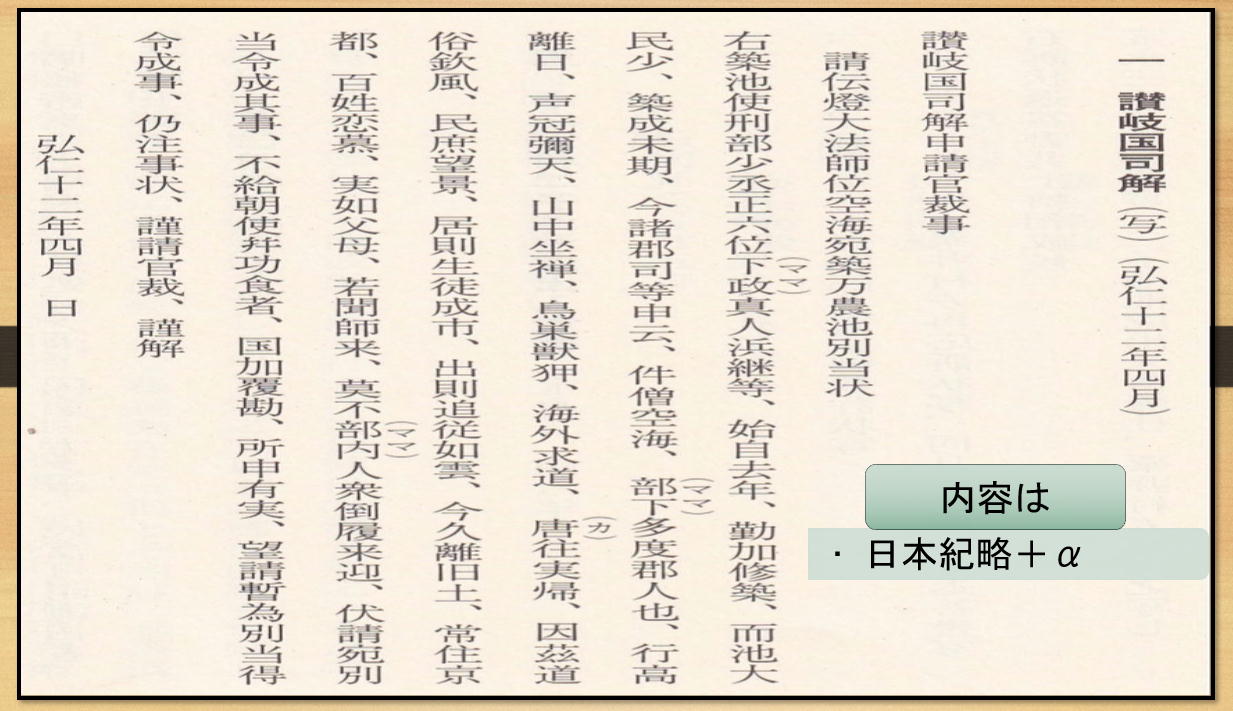 一　讃岐国司解（写）（弘仁十二年四月）
讃岐国司解申請官裁事
請伝燈大法師位空海宛築万農池別当状
右築池使刑部少丞正六位下政真人浜継等、始自去年、勤加修築、而池大
（ママ）
民少、築成未期、今諸郡司等申云、件僧空海、部下多度郡人也、行高
（ママ）
離日、声冠彌天、山中坐禅、鳥巣獣狎、海外求道、唐往実帰、因茲道
（カ）
俗欽風、民庶望景、居則生徒成市、出則追従如雲、今久離旧土、常住京
都、百姓恋慕、実如父母、若聞師来、莫不部内人衆倒履来迎、伏請宛別
（ママ）
当令成其事、不給朝使幷功食者、国加覆勘、所申有実、望請暫為別当得
令成事、仍注事状、謹請官裁、謹解
弘仁十二年四月　日
内容は
・日本紀略＋α